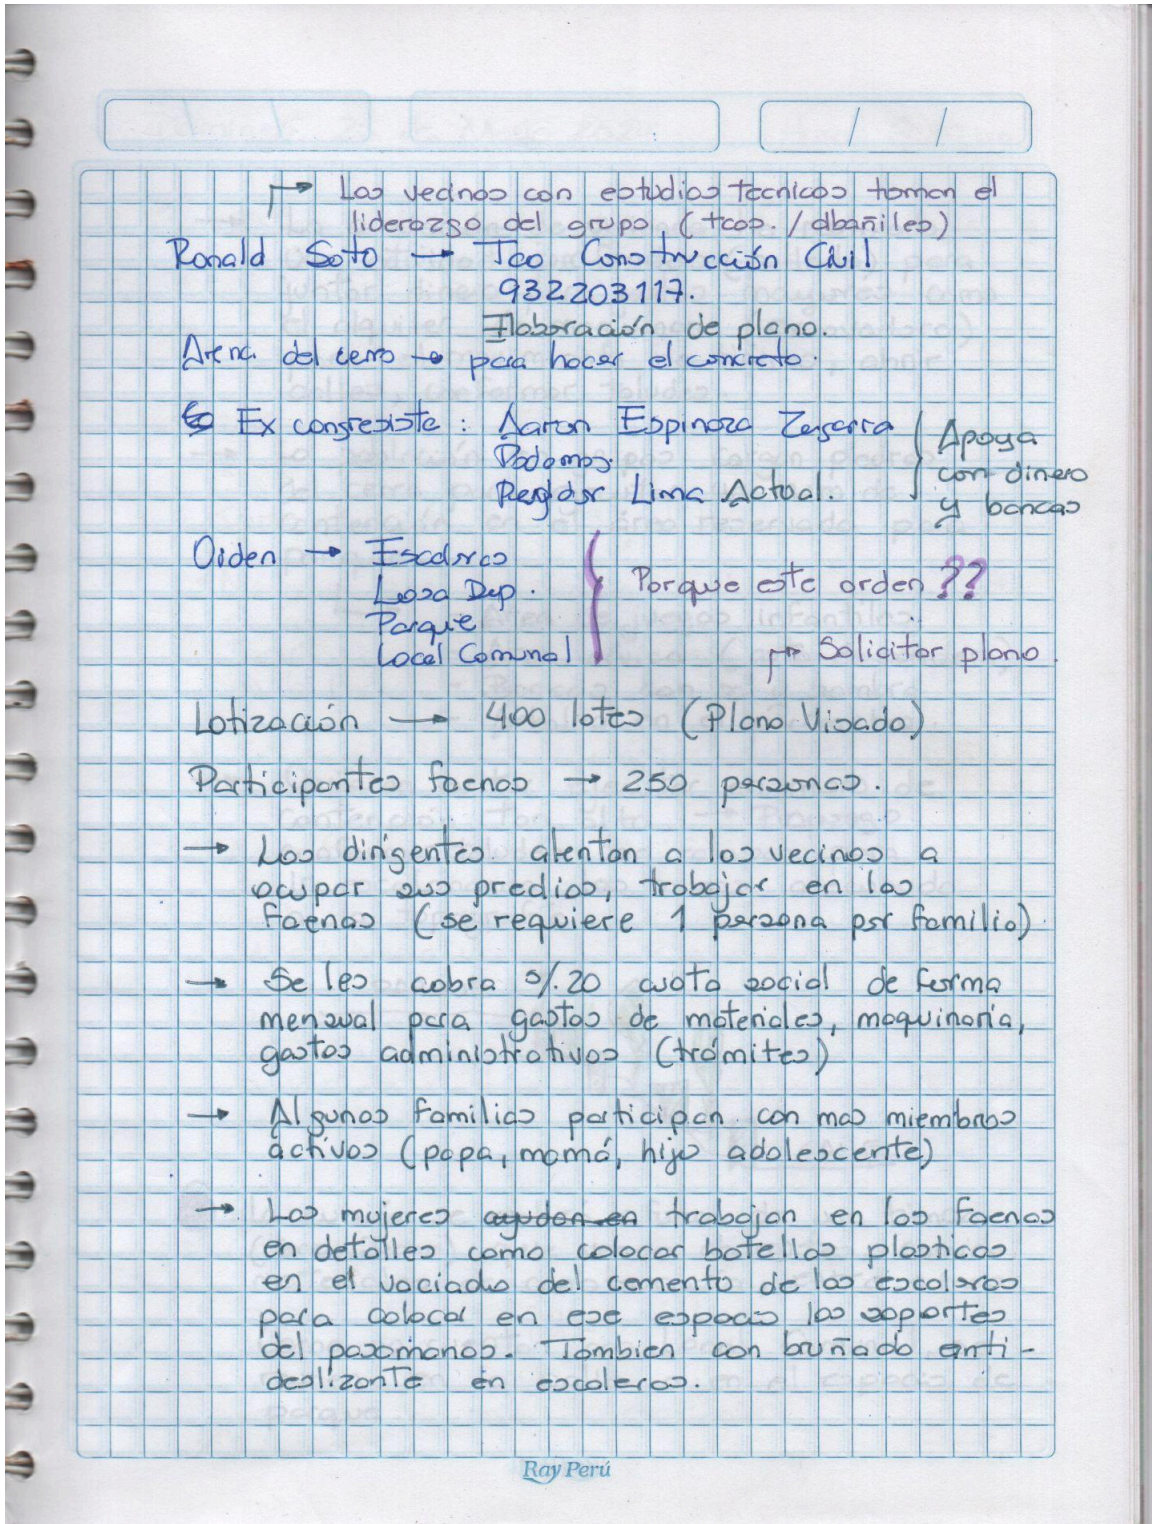 → Los vecinos con estudios tecnicos toman el
liderazgo del grupo (tcos. / albañiles)
Ronald Soto → Tco Construcción Civil
932203117.
Elaboración de plano.
Arena del cerro → para hacer el concreto.
Ex congresista : Aaron Espinoza Zegarra
Podemos.
Regidor Lima Actual.
Apoya
con dinero
y bancas
Orden → Escaleras
Losa Dep.
Parque
Local Comunal
Porque este orden ??
→ Solicitar plano.
Lotización → 400 lotes (Plano Visado)
Participantes faenas → 250 personas.
→ Los dirigentes alentan a los vecinos a
ocupar sus predios, trabajar en las
faenas (se requiere 1 persona por familia)
→ Se les cobra s/.20 cuota social de forma
mensual para gastos de materiales, maquinaria,
gastos administrativos (trámites)
→ Algunas familias participan con mas miembros
activos (papa, mamá, hijo adolescente)
→ Las mujeres ayudan en trabajan en las faenas
en detalles como colocar botellas plasticas
en el vaciado del cemento de las escaleras
para colocar en ese espacio los soportes
del pasamanos. Tambien con bruñado anti-
deslizante en escaleras.
Ray Perú